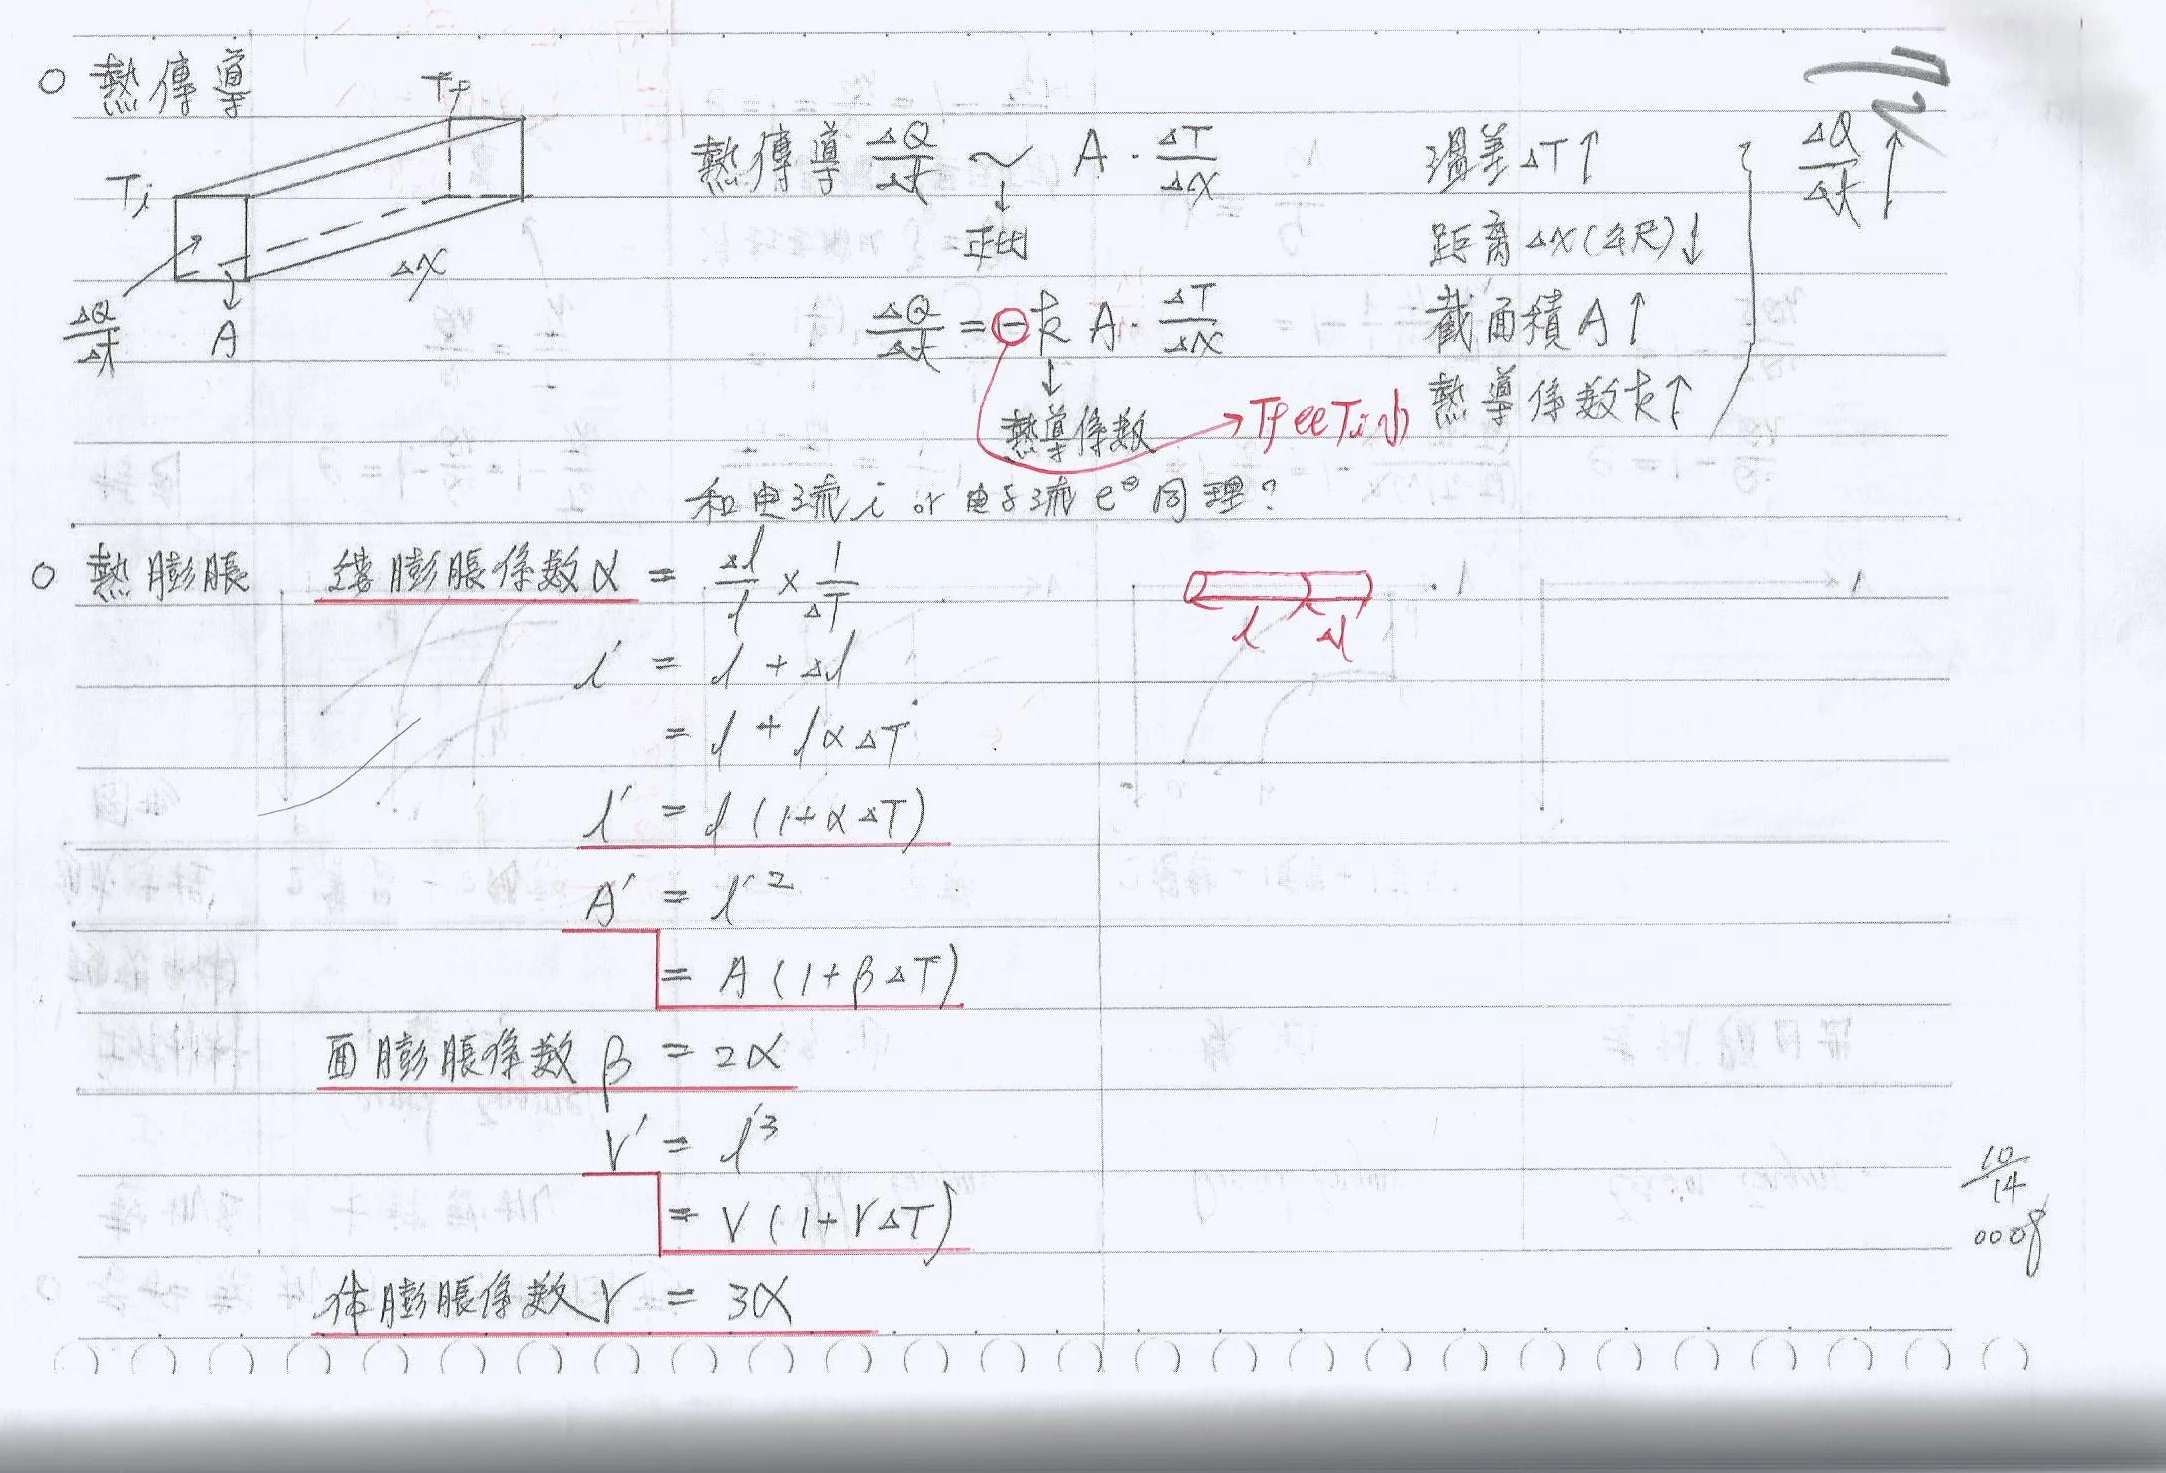 ○ 熱傳導
Tf
Ti
Δx
ΔQ/Δt
A
熱傳導 ΔQ/Δt ~ A · ΔT/Δx
↓
正比
ΔQ/Δt = ⊖ k A · ΔT/Δx
↓
熱導係數
→ Tf 比 Ti 小
溫差 ΔT↑
距離 Δx(公尺)↓
截面積 A↑
熱導係數 k↑
} ΔQ/Δt ↑
和电流 i or 电子流 e⊖ 同理?
○ 熱膨脹 線膨脹係數 α = Δl/l × 1/ΔT
l Δl
l' = l + Δl
= l + lαΔT
l' = l (1+αΔT)
A' = l'²
= A (1+βΔT)
面膨脹係數 β = 2α
V' = l'³
= V (1+γΔT)
体膨脹係數 γ = 3α
10/14
0008